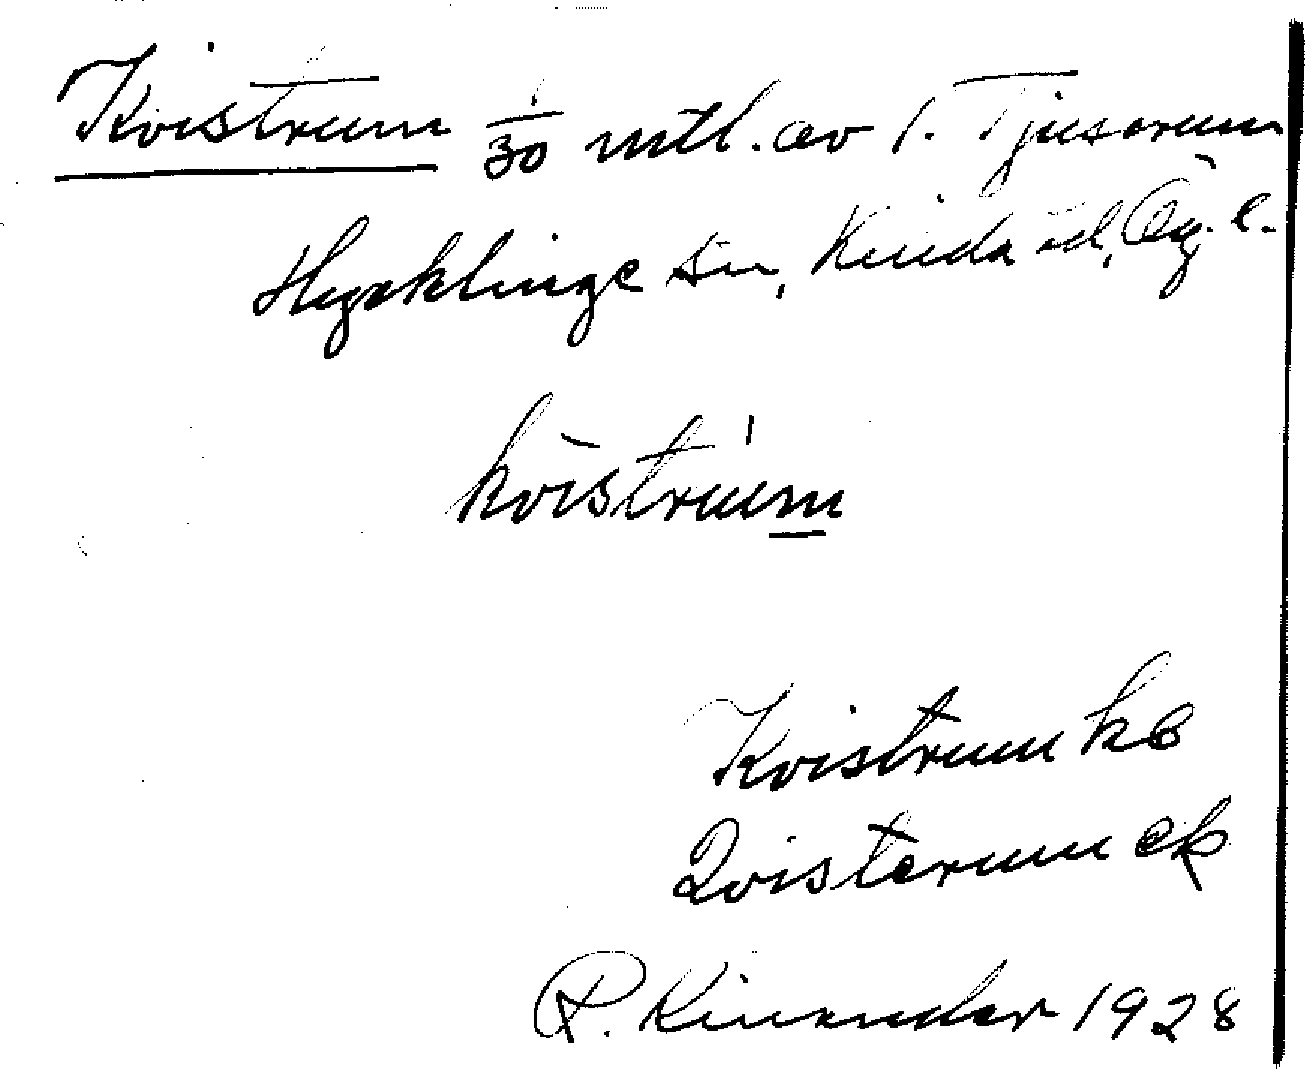 Kvistrum 1/30 mtl. av l. Tjusarum
Hycklinge sn, Kinda hd, Ög. l.
kvìstrùm̲
Kvistrum kb
Qvisterum ek
R. Kinander 1928